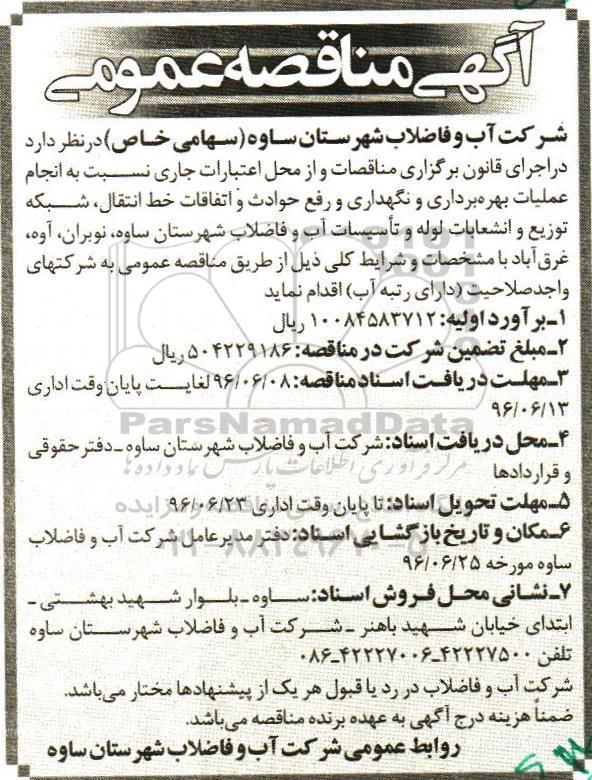 آگهی مناقصه عمومی
شرکت آب و فاضلاب شهرستان ساوه (سهامی خاص) در نظر دارد
در اجرای قانون برگزاری مناقصات و از محل اعتبارات جاری نسبت به انجام
عملیات بهره‌برداری و نگهداری و رفع حوادث و اتفاقات خط انتقال، شبکه
توزیع و انشعابات لوله و تأسسات آب و فاضلاب شهرستان ساوه، نوبران، آوه،
غرق‌آباد با مشخصات و شرایط کلی ذیل از طریق مناقصه عمومی به شرکتهای
واجدصلاحیت (دارای رتبه آب) اقدام نماید
۱ـ برآورد اولیه: ۱۰۰۸۴۵۸۳۷۱۲ ریال
۲ـ مبلغ تضمین شرکت در مناقصه: ۵۰۴۲۲۹۱۸۶ ریال
۳ـ مهلت دریافت اسناد مناقصه: ۹۶/۰۶/۰۸ لغایت پایان وقت اداری
۹۶/۰۶/۱۳
ParsNamadData
۴ـ محل دریافت اسناد: شرکت آب و فاضلاب شهرستان ساوه ـ دفتر حقوقی
و قراردادها
مرکز فرآوری اطلاعات پارس نماد داده‌ها
۵ـ مهلت تحویل اسناد: تا پایان وقت اداری ۹۶/۰۶/۲۳
۶ـ مکان و تاریخ بازگشایی اسناد: دفتر مدیرعامل شرکت آب و فاضلاب
ساوه مورخه ۹۶/۰۶/۲۵
۷ـ نشانی محل فروش اسناد: ساوه ـ بلوار شهید بهشتی ـ
ابتدای خیابان شهید باهنر ـ شرکت آب و فاضلاب شهرستان ساوه
تلفن ۴۲۲۲۷۵۰۰ـ۴۲۲۲۷۰۰۶ـ۰۸۶
شرکت آب و فاضلاب در رد یا قبول هر یک از پیشنهادها مختار می‌باشد.
ضمناً هزینه درج آگهی به عهده برنده مناقصه می‌باشد.
روابط عمومی شرکت آب و فاضلاب شهرستان ساوه